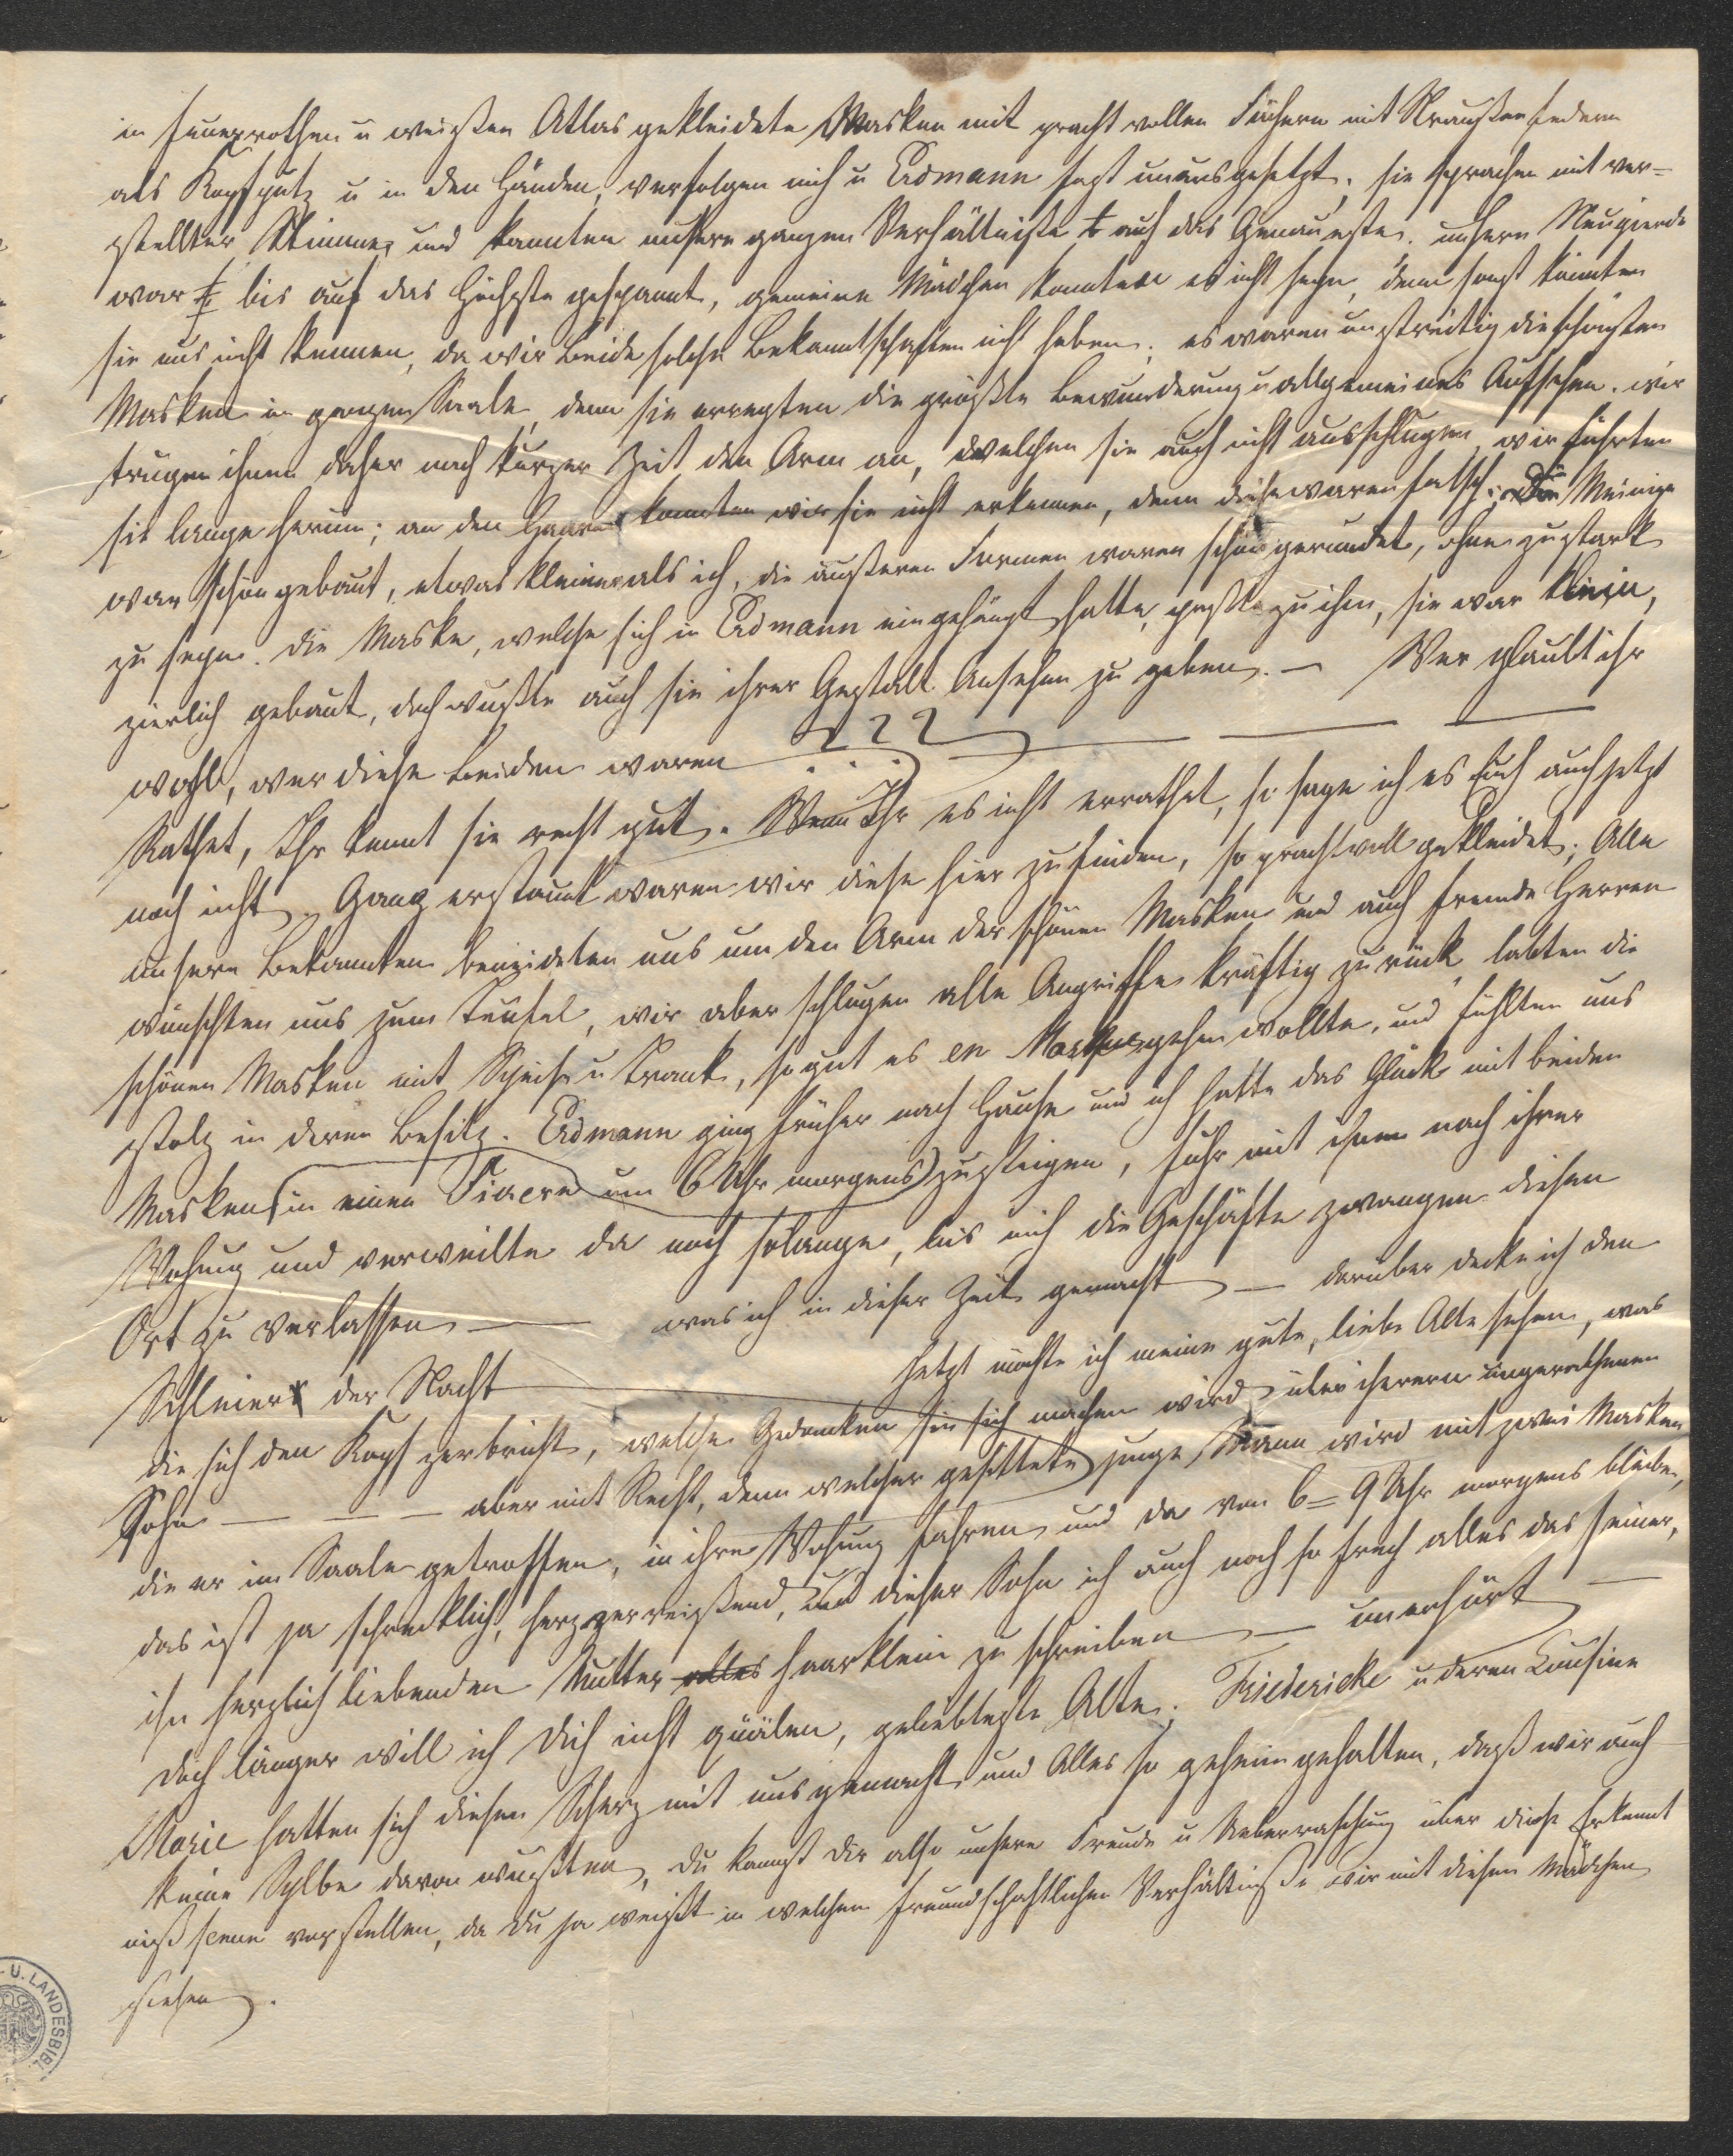 in feuerrothen u weißen Atlas gekleidete Masken mit prachtvollen Fächern mit Straußenfedern
als Kopfputz u in den Händen, verfolgen mich u Erdmann fast unausgesetzt, sie sprachen mit ver=
stellter Stimme, und kannten unsere ganzen Verhältniße auf das Genaueste. unsere Neugierde
war bis auf das Höchste gespannt, gemeine Mädchen konnten es nicht sein, denn sonst könnten
sie uns nicht kennen, da wir beide solche Bekanntschaften nicht haben; es waren unstreitig die schönsten
Masken im ganzen Saale, denn sie erregten die größte Bewunderung u allgemeines Aufsehen. wir
trugen ihnen daher nach kurzer Zeit den Arm an, welchen sie auch nicht ausschlugen, wir führten
sie lange herum; an den Haaren konnten wir sie nicht erkennen, denn diese waren falsch; die Meinige
war schön gebaut, etwas kleiner als ich, die äußeren Formen waren schön gerundet, ohne zu stark
zu sein. Die Maske, welche sich in Erdmann eingehängt hatte, paßte zu ihm, sie war klein,
zierlich gebaut, doch wußte auch sie ihrer Gestalt Ansehen zu geben. — Wer glaubt ihr
wohl, wer diese beiden waren ???
Rathet, Ihr kennt sie recht gut. Wenn Ihr es nicht errathet, so sage ich es Euch auch jetzt
noch nicht. Ganz erstaunt waren wir diese hier zu finden, so prachtvoll gekleidet; Alle
unsere Bekannten beneideten uns um den Arm der schönen Masken und auch fremde Herren
wünschten uns zum Teufel, wir aber schlugen alle Angriffe kräftig zurück, labten die
schönen Masken mit Speise u Trank, so gut es en Masque gehen wollte, und fühlten uns
stolz in deren Besitz. Erdmann ging früher nach Hause und ich hatte das Glück mit beiden
Masken (in einen Fiacre um 6 Uhr morgens) zu steigen, fuhr mit ihnen nach ihrer
Wohnung und verweilte da noch solange, bis mich die Geschäfte zwangen diesen
Ort zu verlassen — was ich in dieser Zeit gemacht — darüber decke ich den
Schleier der Nacht — Jetzt möchte ich meine gute, liebe Alte sehen, was
die sich den Kopf zerbricht, welche Gedanken sie sich machen wird über ihren ungerathenen
Sohn — — — aber mit Recht, denn welcher gesittete junge Mann wird mit zwei Masken
die er im Saale getroffen, in ihre Wohnung fahren und da von 6 = 9 Uhr morgens bleiben,
das ist ja schrecklich, herzzerreißend, und dieser Sohn ist auch noch so frech alles das seiner,
ihn herzlich liebenden Mutter alles haarklein zu schreiben — unerhört —
Doch länger will ich Dich nicht quälen, geliebteste Alte. Friedericke u deren Cousine
Marie hatten sich diesen Scherz mit uns gemacht und Alles so geheim gehalten, daß wir auch
keine Sylbe davon wußten, du kannst dir also unsere Freude u Ueberraschung über diese Erkennt
nißscene vorstellen, da Du ja weißt in welchem freundschaftlichen Verhältniße wir mit diesen Mädchen
stehen.
U. LANDESBIBL.